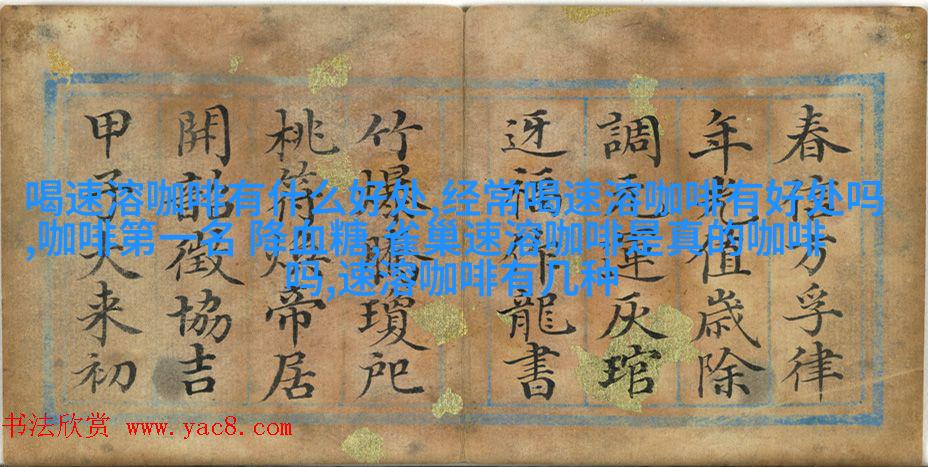 喝速溶咖啡有什么好处,经常喝速溶咖啡有好处吗
,咖啡第一名 降血糖,雀巢速溶咖啡是真的咖啡
吗,速溶咖啡有几种
春方孚律
年光值歲除
調元運灰琯
迓福龍書
竹爆瓊
桃符帝居
開韶徵協吉
甲子大来初
书法欣赏 www.yac8.com